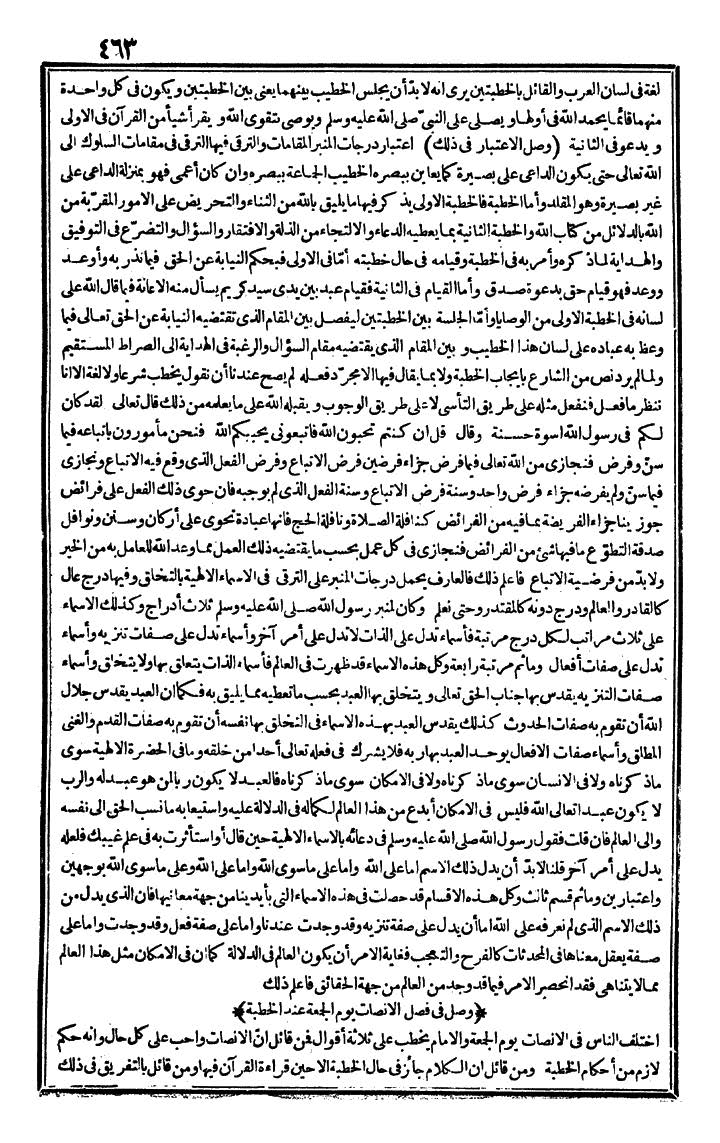 ٤٦٣
لغة فى لسان العرب والقائل بالخطبتين يرى انه لا بدّ أن يجلس الخطيب بينهما يعنى بين الخطبتين ويكون فى كل واحدة
منهما قائما يحمد الله فى أولها ويصلى على النبىّ صلى الله عليه وسلم ويوصى بتقوى الله ويقرأ شيأ من القرآن فى الاولى
ويدعو فى الثانية (وصل الاعتبار فى ذلك) اعتبار درجات المنبر المقامات والترقى فيها الترقى فى مقامات السلوك الى
الله تعالى حتى يكون الداعى على بصيرة كما يعاين ببصره الخطيب الجماعة ببصره وان كان أعمى فهو بمنزلة الداعى على
غير بصيرة وهو المقلد وأما الخطبة فالخطبة الاولى يذكر فيها ما يليق بالله من الثناء والتحريض على الامور المقرّبة من
الله بالدلائل من كتاب الله والخطبة الثانية بما يعطيه الدعاء والالتجاء من الذلة والافتقار والسؤال والتضرّع فى التوفيق
والهداية لما ذكره وأمر به فى الخطبة وقيامه فى حال خطبته أمّا فى الاولى فبحكم النيابة عن الحق فيما نذر به وأوعد
ووعد فهو قيام حق بدعوة صدق وأما القيام فى الثانية فقيام عبد بين يدى سيد كريم يسأل منه الاعانة فيما قال الله على
لسانه فى الخطبة الاولى من الوصايا وأمّا الجلسة بين الخطبتين ليفصل بين المقام الذى تقتضيه النيابة عن الحق تعالى فيما
وعظ به عباده على لسان هذا الخطيب وبين المقام الذى يقتضيه مقام السؤال والرغبة فى الهداية الى الصراط المستقيم
ولما لم يرد نص من الشارع بايجاب الخطبة ولا بما يقال فيها الا مجرّد فعله لم يصح عندنا أن نقول يخطب شرعا ولا لغة الا انا
ننظر ما فعل فنفعل مثله على طريق التأسى لا على طريق الوجوب ويقبله الله على ما يعلمه من ذلك قال تعالى لقد كان
لكم فى رسول الله اسوة حسنة وقال قل ان كنتم تحبون الله فاتبعونى يحببكم الله فنحن مأمورون باتباعه فيما
سنّ وفرض فنجازى من الله تعالى فيما فرض جزاء فرضين فرض الاتباع وفرض الفعل الذى وقع فيه الاتباع ونجازى
فيما سنّ ولم يفرضه جزاء فرض واحد وسنة فرض الاتباع وسنة الفعل الذى لم يوجبه فان حوى ذلك الفعل على فرائض
جوزينا جزاء الفريضة بما فيه من الفرائض كنافلة الصلاة ونافلة الحج فانها عبادة تحوى على أركان وسنن ونوافل
صدقة التطوّع ما فيها شئ من الفرائض فنجازى فى كل عمل بحسب ما يقتضيه ذلك العمل مما وعد الله للعامل به من الخير
ولا بدّ من فرضية الاتباع فاعلم ذلك فالعارف يحمل درجات المنبر على الترقى فى الاسماء الالهية بالتخلق وفيها درج عال
كالقادر والعالم ودرج دونه كالمقتدر وحتى نعلم وكان لمنبر رسول الله صلى الله عليه وسلم ثلاث أدراج وكذلك الاسماء
على ثلاث مراتب لكل درج مرتبة فأسماء تدل على الذات لا تدل على أمر آخر وأسماء تدل على صفات تنزيه وأسماء
تدل على صفات أفعال وما ثم مرتبة رابعة وكل هذه الاسماء قد ظهرت فى العالم فأسماء الذات يتعلق بها ولا يتخلق وأسماء
صفات التنزيه يقدس بها جناب الحق تعالى ويتخلق بها العبد بحسب ما تعطيه مما يليق به فكما ان العبد يقدس جلال
الله أن تقوم به صفات الحدوث كذلك يقدس العبد بهذه الاسماء فى التخلق بها نفسه أن تقوم به صفات القدم والغنى
المطلق وأسماء صفات الافعال يوحد العبد بها ربه فلا يشرك فى فعله تعالى أحدا من خلقه وما فى الحضرة الالهية سوى
ما ذكرناه ولا فى الانسان سوى ما ذكرناه ولا فى الامكان سوى ما ذكرناه فالعبد لا يكون ربا لمن هو عبد له والرب
لا يكون عبدا تعالى الله فليس فى الامكان أبدع من هذا العالم لكماله فى الدلالة عليه واستيعابه ما نسب الحق الى نفسه
والى العالم فان قلت فقول رسول الله صلى الله عليه وسلم فى دعائه بالاسماء الالهية حين قال أو استأثرت به فى علم غيبك فلعله
يدل على أمر آخر قلنا لا بدّ أن يدل ذلك الاسم اما على الله واما على ما سوى الله واما على الله وعلى ما سوى الله بوجهين
واعتبارين وما ثم قسم ثالث وكل هذه الاقسام قد حصلت فى هذه الاسماء التى بأيدينا من جهة معانيها فان الذى يدل من
ذلك الاسم الذى لم نعرفه على الله اما أن يدل على صفة تنزيه وقد وجدت عندنا واما على صفة فعل وقد وجدت واما على
صفة يعقل معناها فى المحدثات كالفرح والتعجب فغاية الامر أن يكون العالم فى الدلالة كما ان فى الامكان مثل هذا العالم
مما لا يتناهى فقد انحصر الامر فيما قد وجد من العالم من جهة الحقائق فاعلم ذلك
﴿وصل فى فصل الانصات يوم الجمعة عند الخطبة﴾
اختلف الناس فى الانصات يوم الجمعة والامام يخطب على ثلاثة أقوال فمن قائل انّ الانصات واجب على كل حال وانه حكم
لازم من أحكام الخطبة ومن قائل ان الكلام جائز فى حال الخطبة الا حين قراءة القرآن فيها ومن قائل بالتفريق فى ذلك